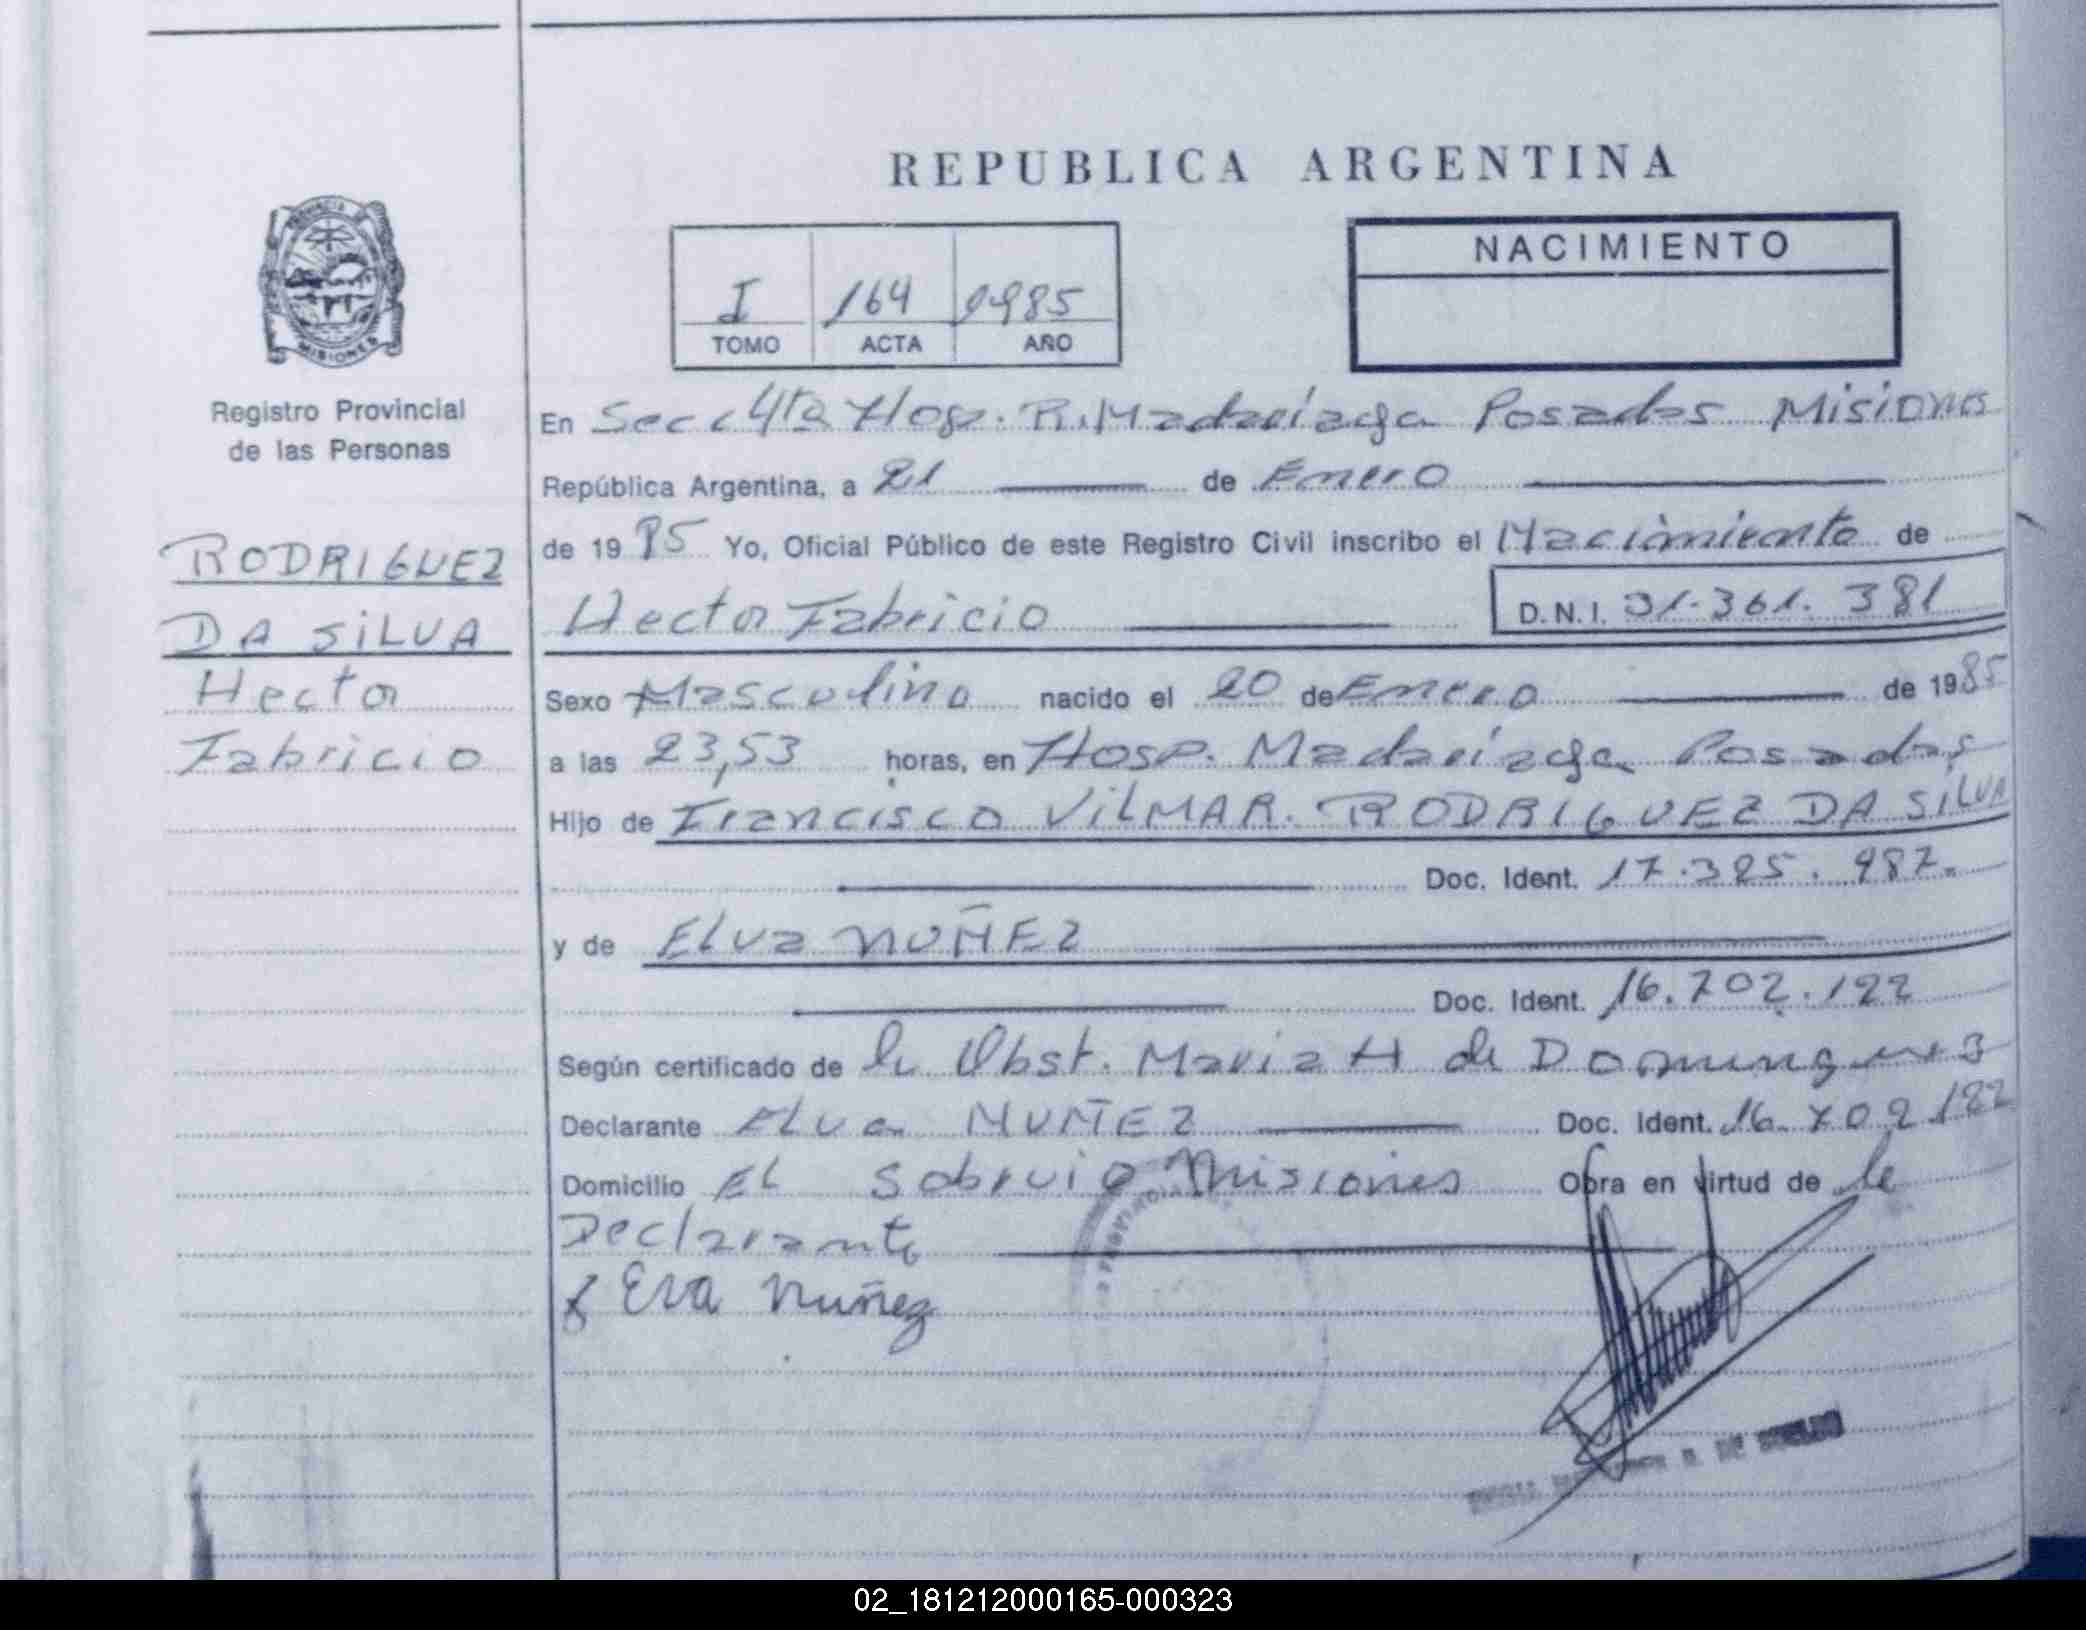 REPUBLICA ARGENTINA
PROVINCIA DE
MISIONES
Registro Provincial
de las Personas
I 164 1985
TOMO ACTA AÑO
NACIMIENTO
RODRIGUEZ
DA SILVA
Hector
Fabricio
En Secc 4ta Hosp. R. Madariaga Posadas Misiones
República Argentina, a 21 de Enero
de 1985 Yo, Oficial Público de este Registro Civil inscribo el Nacimiento de
Hector Fabricio D.N.I. 31.361.381
Sexo Masculino nacido el 20 de Enero de 1985
a las 23,53 horas, en Hosp. Madariaga Posadas
Hijo de Francisco VILMAR. RODRIGUEZ DA SILVA
Doc. Ident. 17.325.987.
y de ELva NUÑEZ
Doc. Ident. 16.702.122
Según certificado de la Obst. Maria H de Domingues
Declarante ELva NUÑEZ Doc. Ident. 16.702 122
Domicilio EL Sobrvio Misiones Obra en virtud de la
Declarante
x Eva Nuñez
02_181212000165-000323